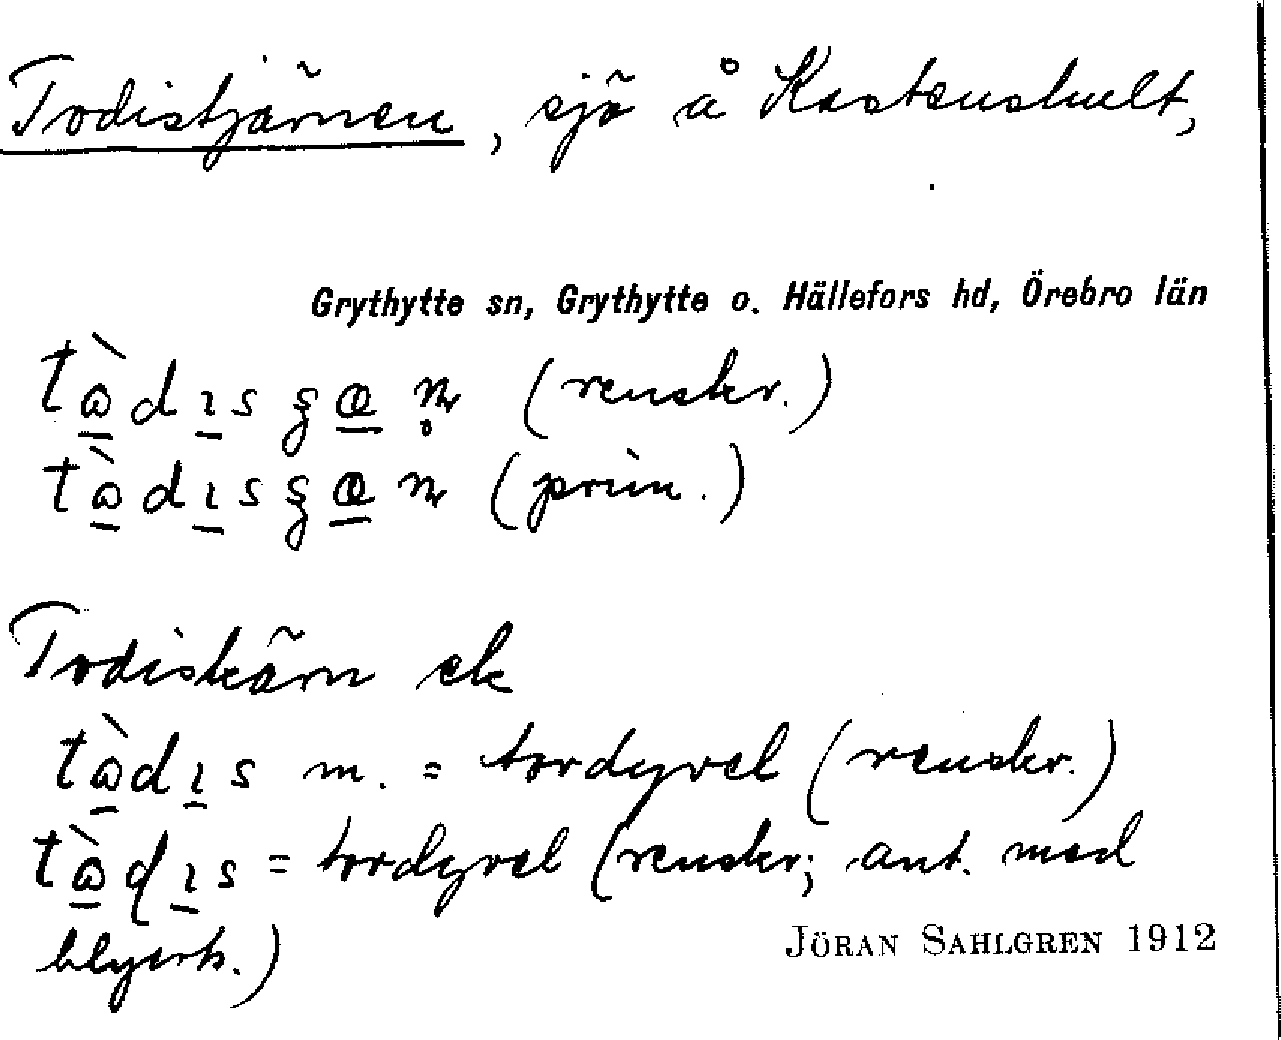 Todistjärnen, sjö å Kastenshult,
Grythytte sn, Grythytte o. Hällefors hd, Örebro län
(renskr.)
(prim.)
Todiskärn ek
m. = tordyvel (renskr.)
= tordyvel (renskr; ant. med
blyerts.)
JÖRAN SAHLGREN 1912